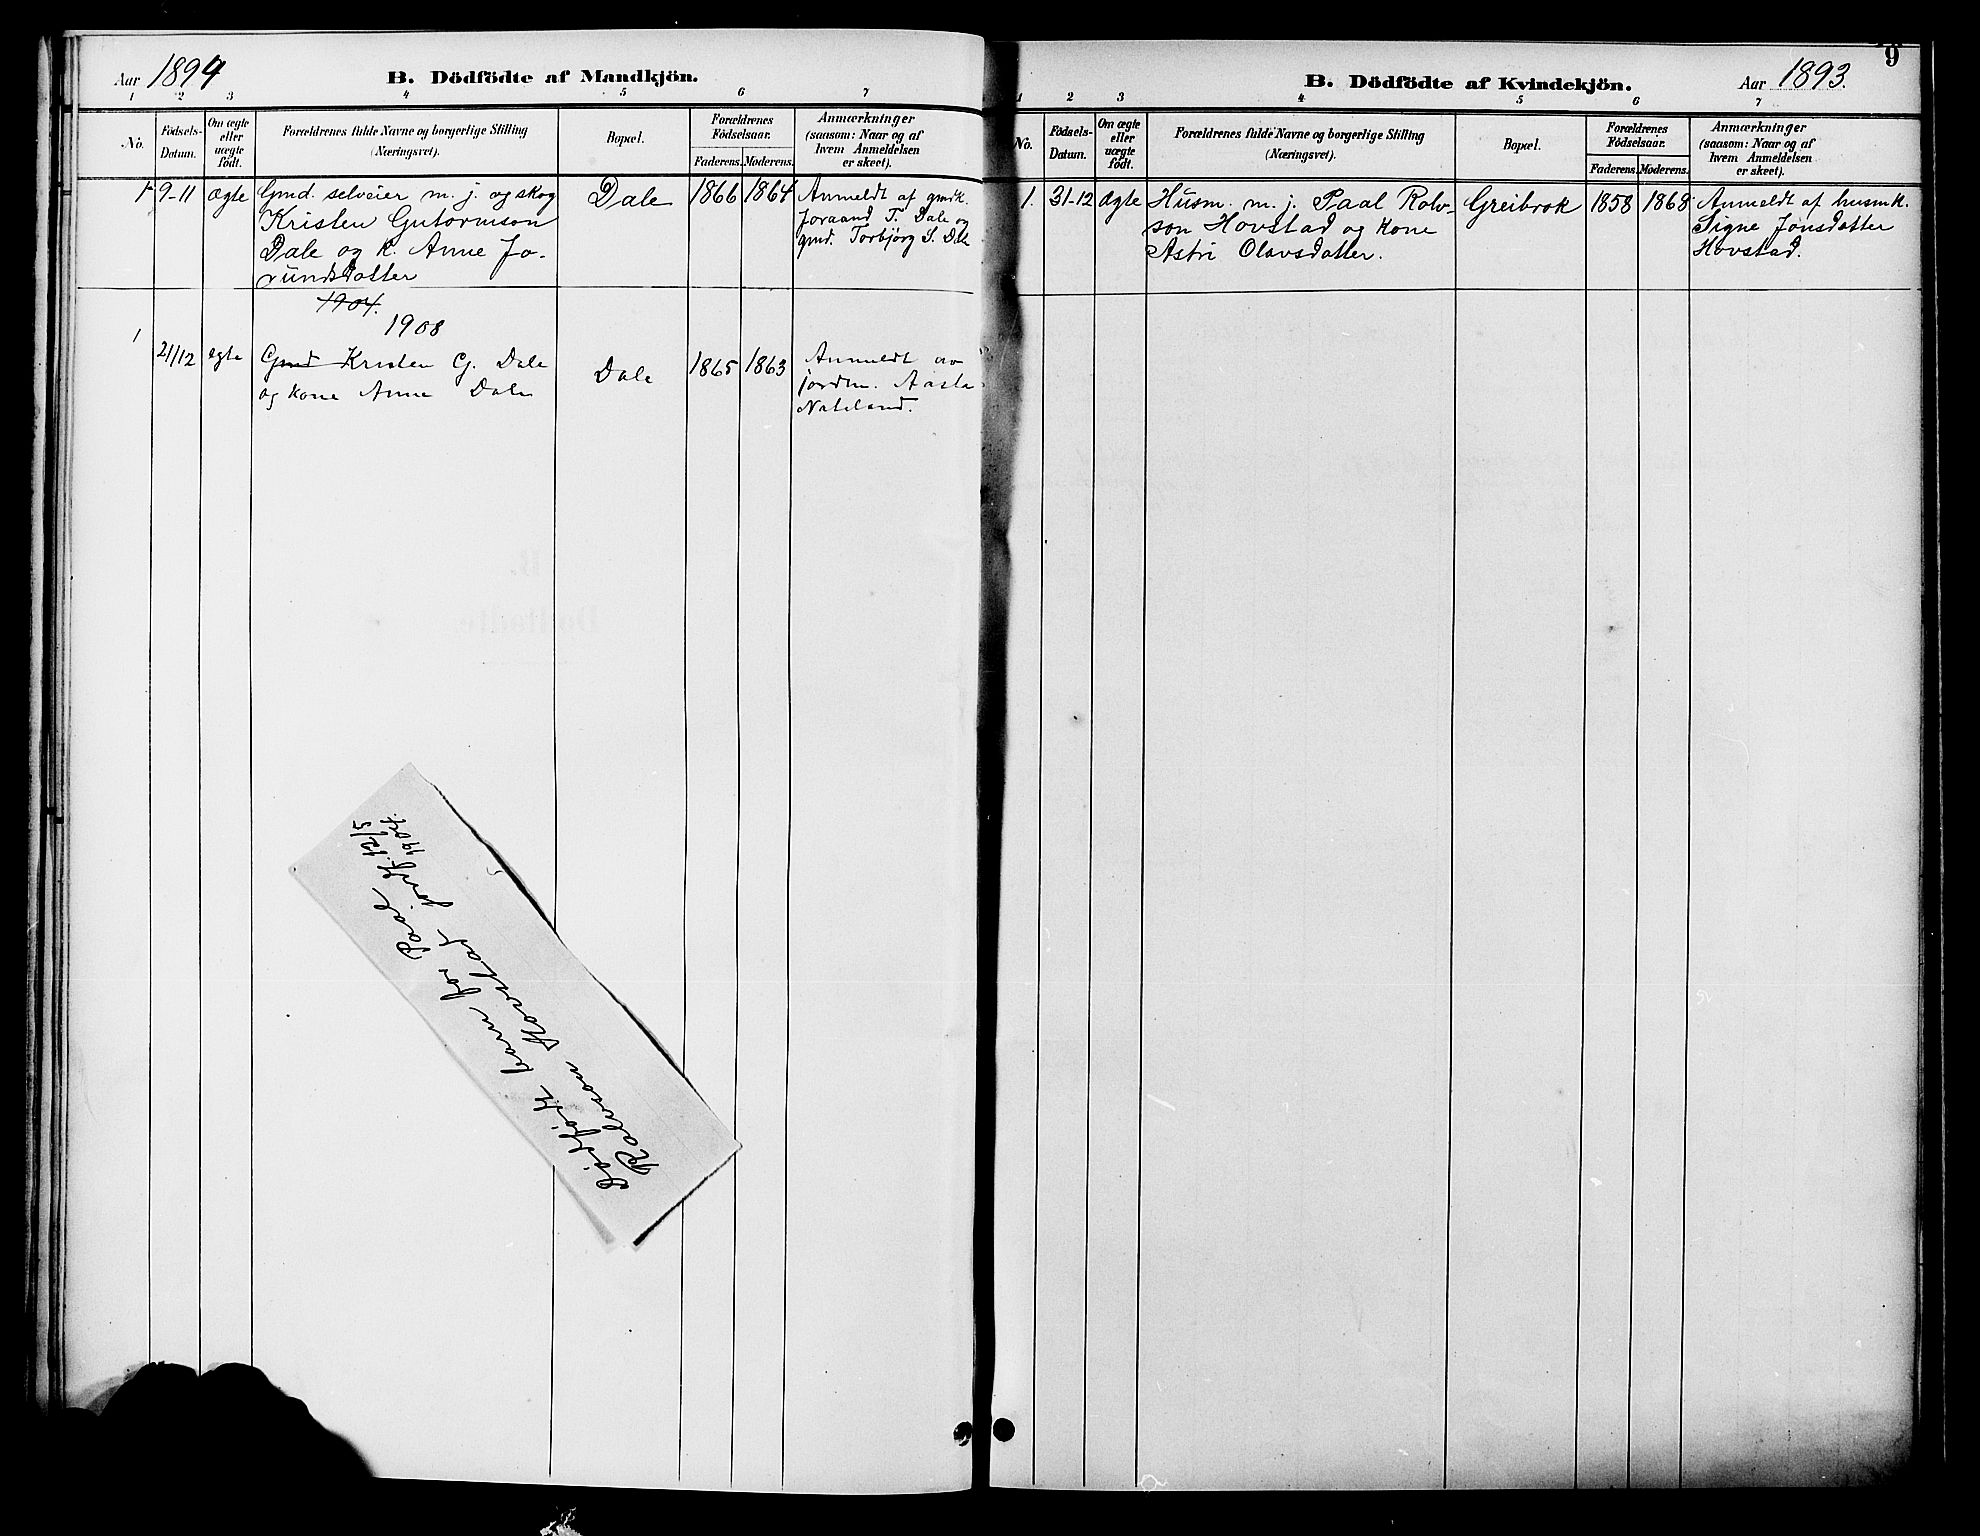 Aar 1894 B. Dödfödte af Mandkjön.
1 2 3 4 5 6 7
No. Födsels-Datum. Om ægte eller uægte födt. Forældrenes fulde Navne og borgerlige Stilling (Næringsvei). Bopæl. Forældrenes Födselsaar. Faderens. Moderens. Anmærkninger (saasom: Naar og af hvem Anmeldelsen er skeet).
1 9-11 ægte Gmd. selveier m. j. og skog Dale 1866 1864 Anmeldt af gmdk.
Kristen Gutormson Joraand T. Dale og
Dale og k. Anne Jo- gmd. Torbjörg S. Dale
rundsdatter
1904.
1908
1 21/12 egte Gmd Kristen G. Dale Dale 1865 1863 Anmeldt av
og kone Anne Dale jordm. Aasta
Nateland.
Dödfödt barn for Paal
Rolvson Hovstad jordf. 12/5
1904.
9
B. Dödfödte af Kvindekjön. Aar 1893.
1 2 3 4 5 6 7
No. Födsels-Datum. Om ægte eller uægte födt. Forældrenes fulde Navne og borgerlige Stilling (Næringsvei). Bopæl. Forældrenes Födselsaar. Faderens. Moderens. Anmærkninger (saasom: Naar og af hvem Anmeldelsen er skeet).
1. 31-12 ægte Husm. m. j. Paal Rolv- Greibrok 1858 1868 Anmeldt af husmk.
son Hovstad og kone Signe Jonsdatter
Astri Olavsdatter. Hovstad.